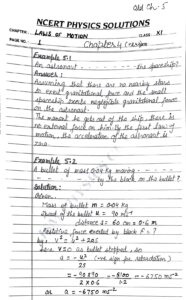 Old Ch. 5
NCERT PHYSICS SOLUTIONS
CHAPTER: LAWS OF MOTION CLASS XI
PAGE NO. 1 Chapter 4 (
Example 5.1
An astronaut the spaceship?
Answer:
Assuming that there are no nearby stars
to exert gravitational force and the small
spaceship exerts negligible gravitational force
on the astronaut.
The moment he gets out of the ship, there is
no external force on him. By the first law of
motion, the acceleration of the astronaut is
zero.
Example 5.2
A bullet of mass 0.04 kg moving
by the block on the bullet?
Solution:
Given
Mass of bullet m = 0.04 kg
Speed of the bullet u = 90 ms⁻¹
distance s = 60 cm = 0.6 m
Resistive force exerted by block F = ?
by v² = u² + 2as
Here v = 0 as bullet stopped, so
a = -u² (-ve sign for retardation)
2s
= -90×90 = -8100 = -6750 ms⁻²
2×0.6 1.2
or a = -6750 ms⁻²